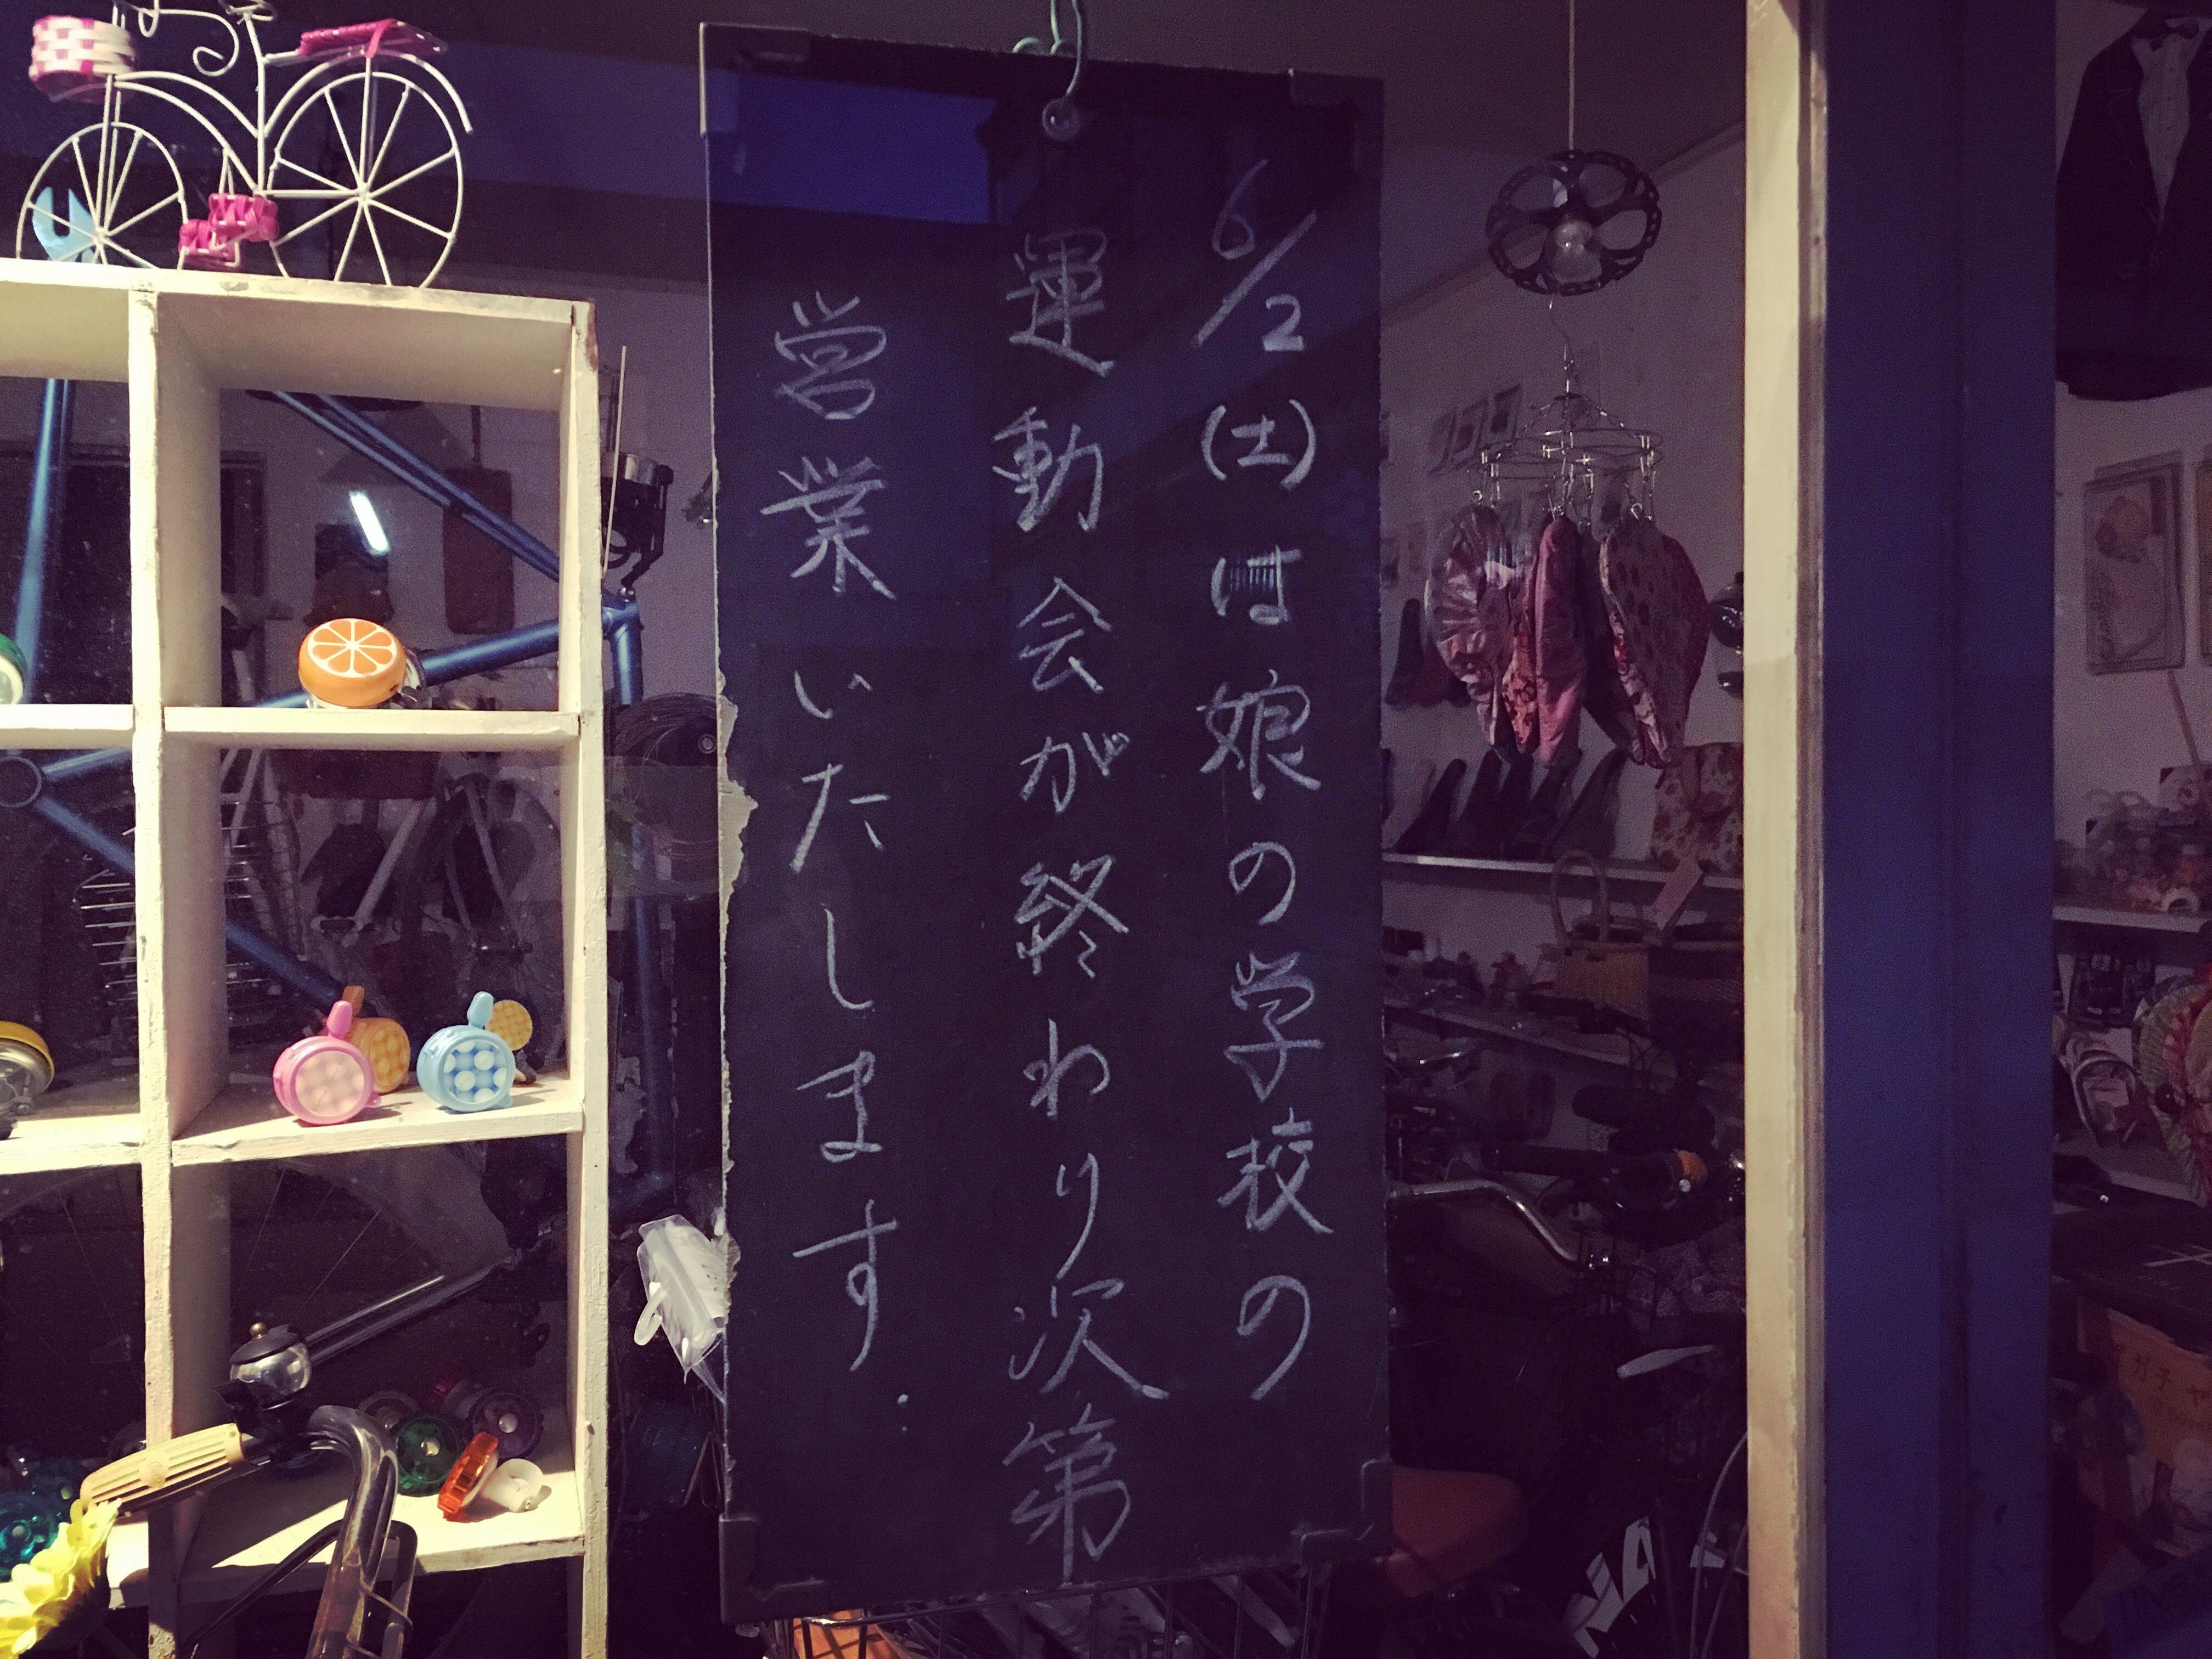 6/2(土)は娘の学校の
運動会が終わり次第
営業いたします.
ガチャ